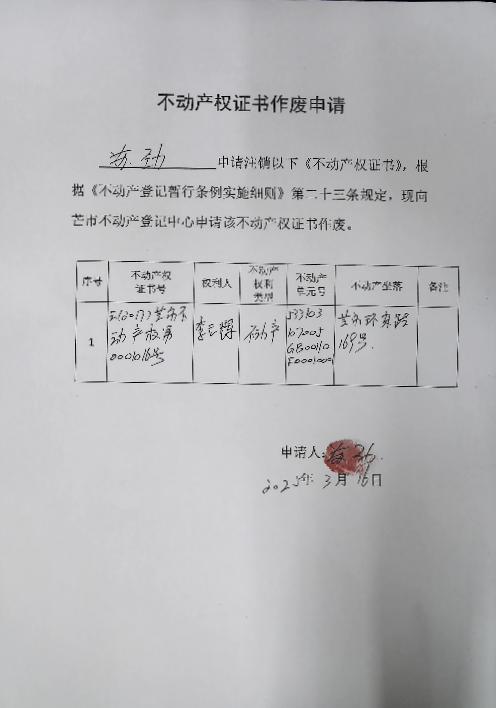 不动产权证书作废申请
苏 劲 申请注销以下《不动产权证书》，根
据《不动产登记暂行条例实施细则》第二十三条规定，现向
芒市不动产登记中心申请该不动产权证书作废。
序号 不动产权证书号 权利人 不动产权利类型 不动产单元号 不动产坐落 备注
1 (2017)芒市不动产权第 号 李 不动产 533103 芒市环东路169号
申请人：苏 劲
2025年 3月 16日